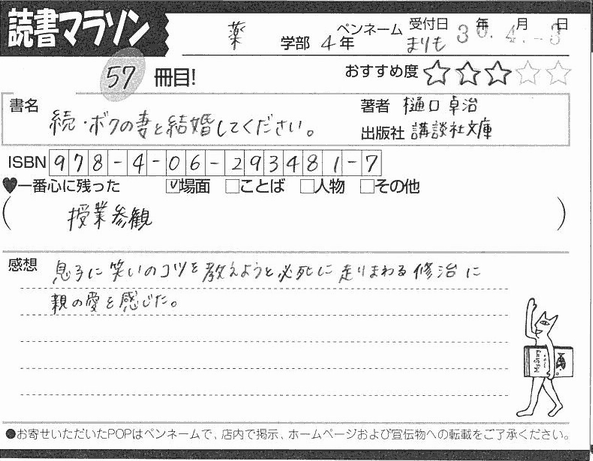 読書マラソン
薬 学部 4年 ペンネーム まりも 受付日 30年 4月 -3日
57 冊目! おすすめ度 ★★★☆☆
書名 続・ボクの妻と結婚してください。
著者 樋口卓治
出版社 講談社文庫
ISBN 978-4-06-293481-7
♥一番心に残った ☑場面 □ことば □人物 □その他
( 授業参観 )
感想 息子に笑いのコツを教えようと必死に走りまわる修治に
親の愛を感じた。
●お寄せいただいたPOPはペンネームで、店内で掲示、ホームページおよび宣伝物への転載をご了承ください。